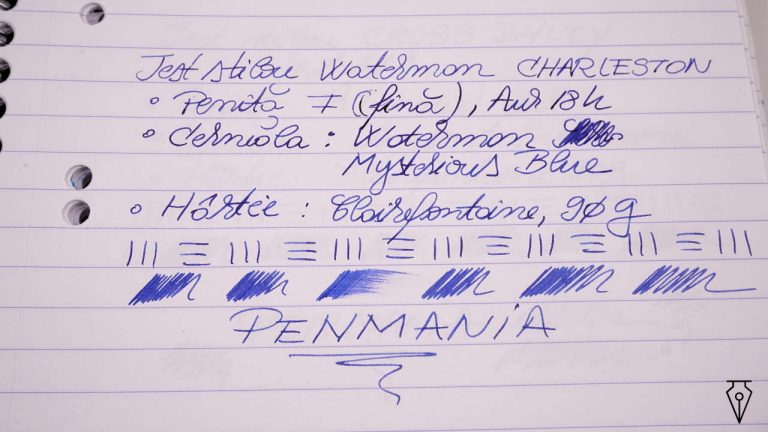 Test stilou Waterman CHARLESTON
• Peniță F (fină), Aur 18k
• Cerneala: Waterman
Mysterious Blue
• Hârtie: Clairefontaine, 90 g
PENMANIA